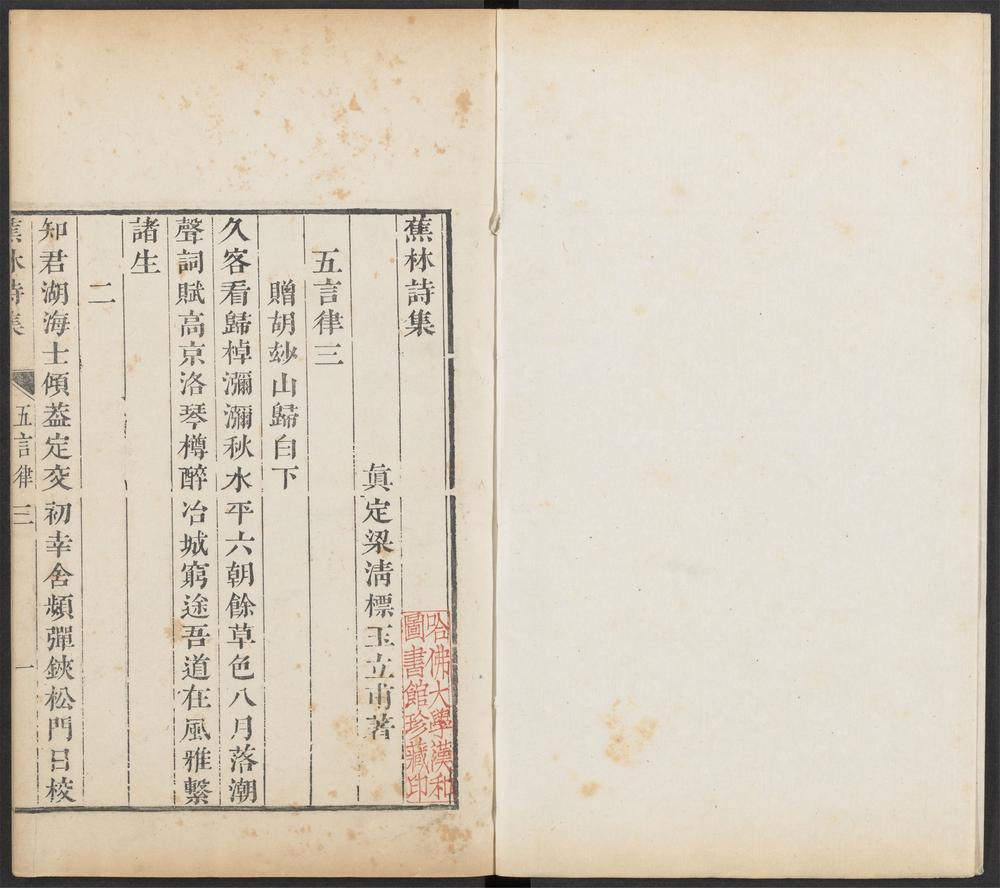 蕉林詩集
真定梁清標玉立甫著
哈佛大學漢和
圖書館珍藏印
五言律三
贈胡玅山歸白下
久客看歸棹瀰瀰秋水平六朝餘草色八月落潮
聲詞賦高京洛琴樽醉冶城窮途吾道在風雅繫
諸生
二
知君湖海士傾葢定交初幸舍頻彈鋏松門日校
蕉林詩集 五言律三 一